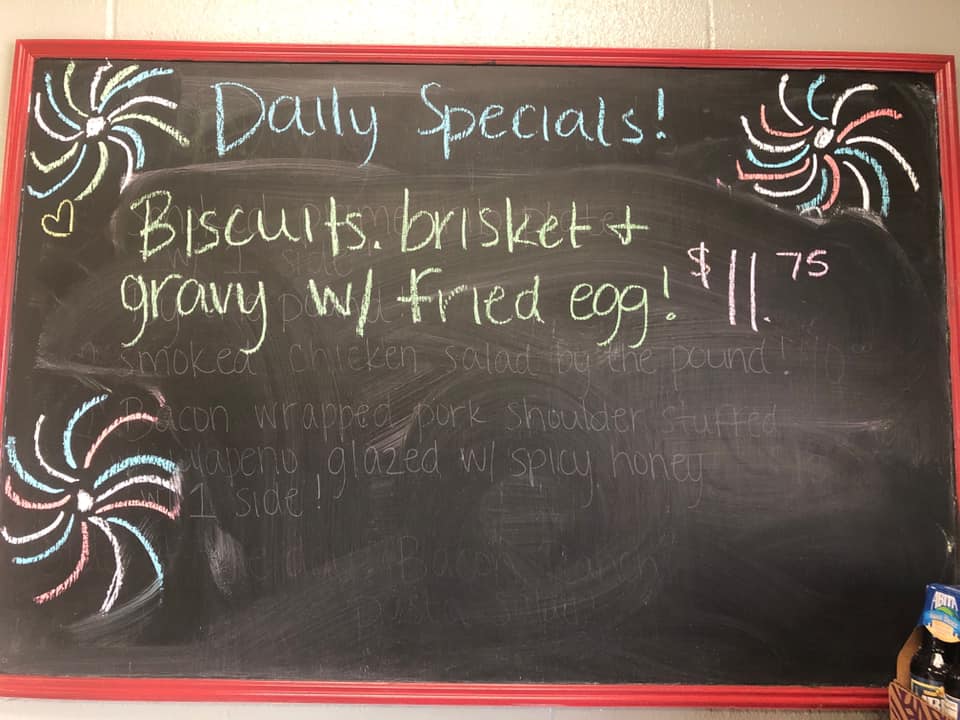 Daily Specials!
Biscuits. brisket +
gravy w/ fried egg! $11.75
smoked chicken salad by the pound!
Bacon wrapped pork shoulder stuffed
glazed w/ spicy honey
w/ 1 side!
Bacon Ranch
ABITA